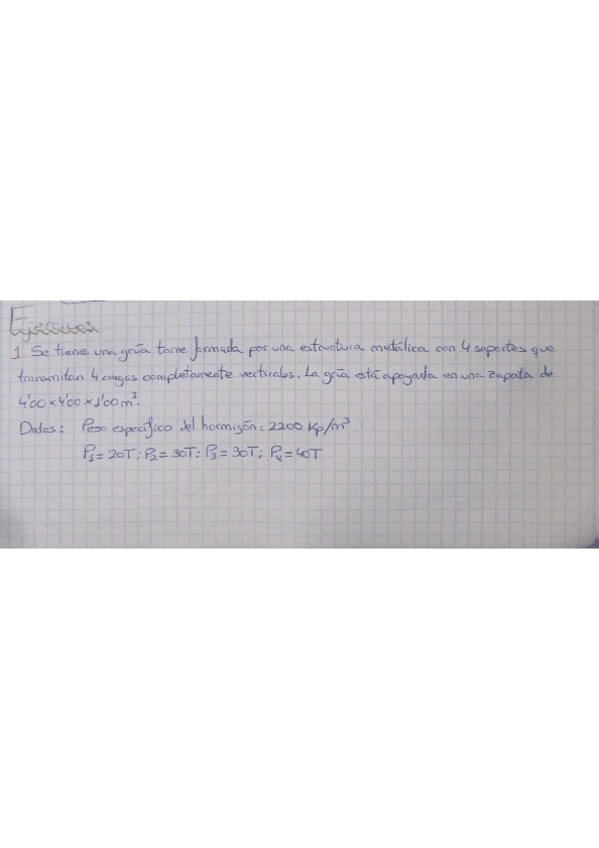 Ejercicios
1. Se tiene una grúa torre formada por una estructura metálica con 4 soportes que
transmitan 4 cargas completamente verticales. La grúa está apoyada en una zapata de
4'00 x 4'00 x 1'00 m³.
Datos: Peso específico del hormigón: 2200 Kp/m³
P₁ = 20T; P₂ = 30T; P₃ = 30T; P₄ = 40T